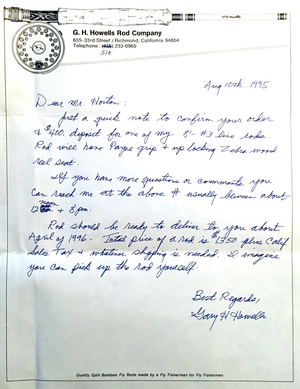 G. H. Howells Rod Company
655-33rd Street / Richmond, California 94804
Telephone: (415) 233-0960
510
Aug 10th 1995
Dear Mr. Horton:
Just a quick note to confirm your order
& $400. deposit for one of my 8'- #3 line rods.
Rod will have Payne grip & up locking Zebra wood
reel seat.
If you have more questions or comments, you
can reach me at the above # usually between about
12 & 8 pm.
Rod should be ready to deliver to you about
April of 1996. Total price of a rod is $1350 plus Calif
Sales Tax & whatever shipping is needed. I imagine
you can pick up the rod yourself.
Best Regards,
Gary H Howells
Quality Split Bamboo Fly Rods made by a Fly Fisherman for Fly Fishermen